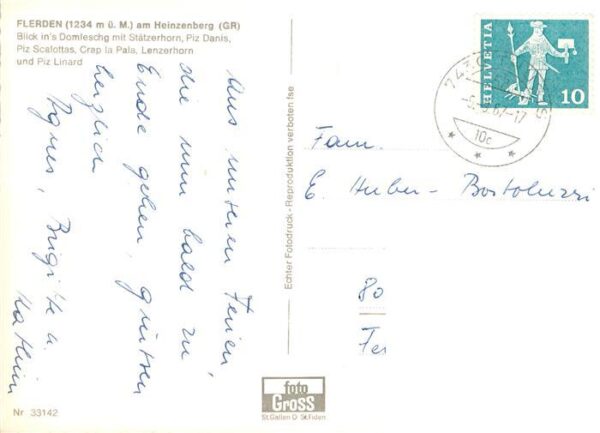 FLERDEN (1234 m ü. M.) am Heinzenberg (GR)
Blick in's Domleschg mit Stätzerhorn, Piz Danis,
Piz Scalottas, Crap la Pala, Lenzerhorn
und Piz Linard
Aus unseren Ferien,
die nun bald zu
Ende gehen, grüssen
herzlich
Agnes, Brigitte u.
Kathrin
Nr 33142
Echter Fotodruck - Reproduktion verboten
foto
Gross
St.Gallen O St.Fiden
HELVETIA
10
10c
Fam.
E. Huber - Bortoluzzi
80